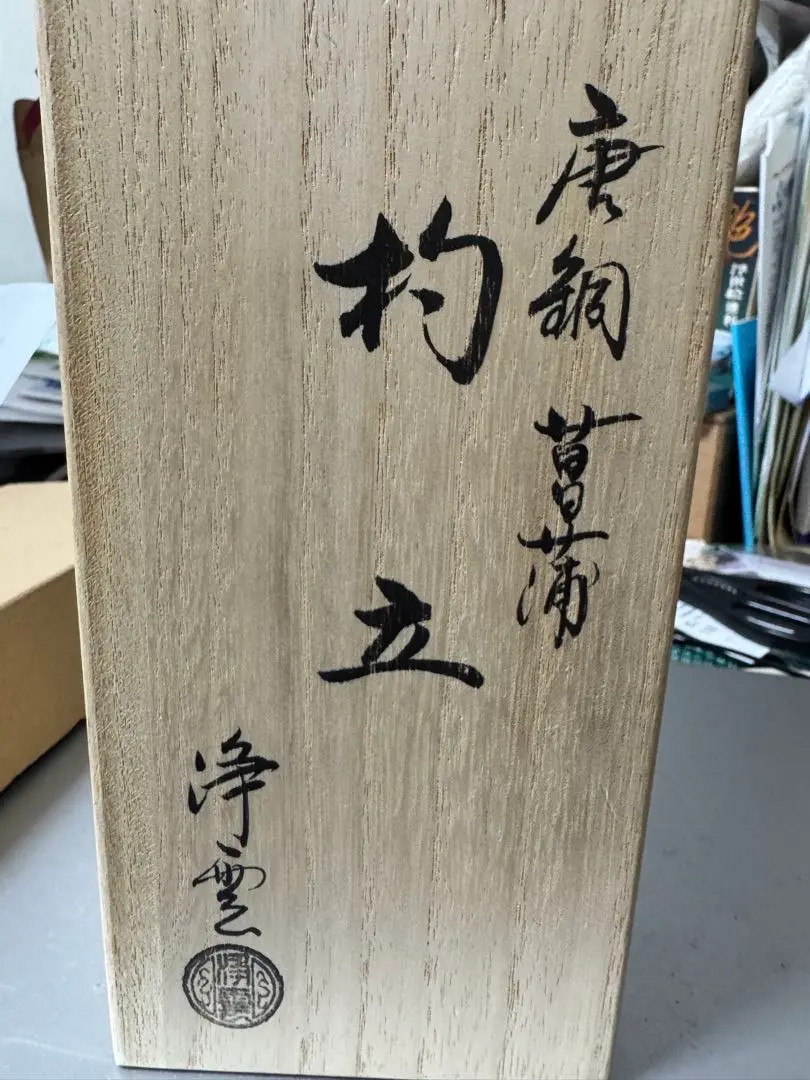 唐銅 菖蒲
杓立
浄雲
浄雲